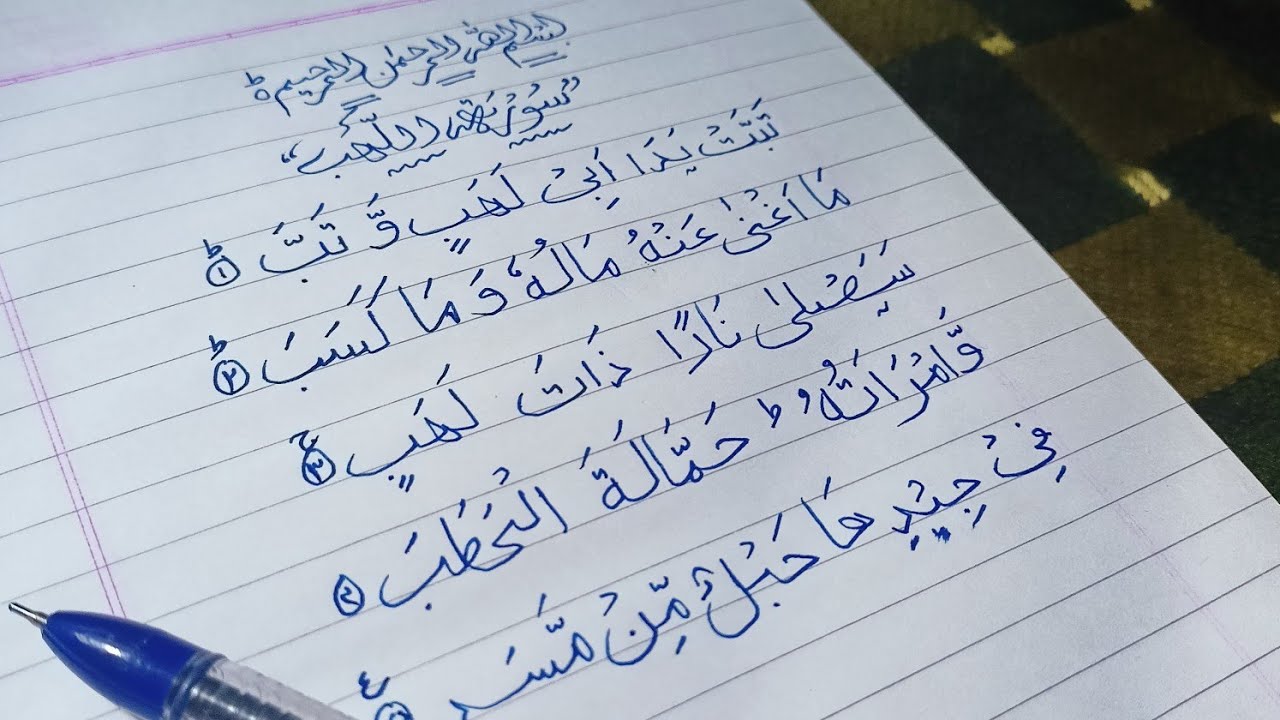 بِسْمِ اللهِ الرَّحْمٰنِ الرَّحِيْمِ ط
"سُوْرَةُ اللَّهَبِ"
تَبَّتْ يَدَا اَبِىْ لَهَبٍ وَّ تَبَّ ۱ؕ
مَا اَغْنٰى عَنْهُ مَالُهٗ وَ مَا كَسَبَ ۲ؕ
سَيَصْلٰى نَارًا ذَاتَ لَهَبٍ ۳ۚ
وَّامْرَاَتُهٗ ؕ حَمَّالَةَ الْحَطَبِ ۴
فِىْ جِيْدِهَا حَبْلٌ مِّنْ مَّسَدٍ ۵